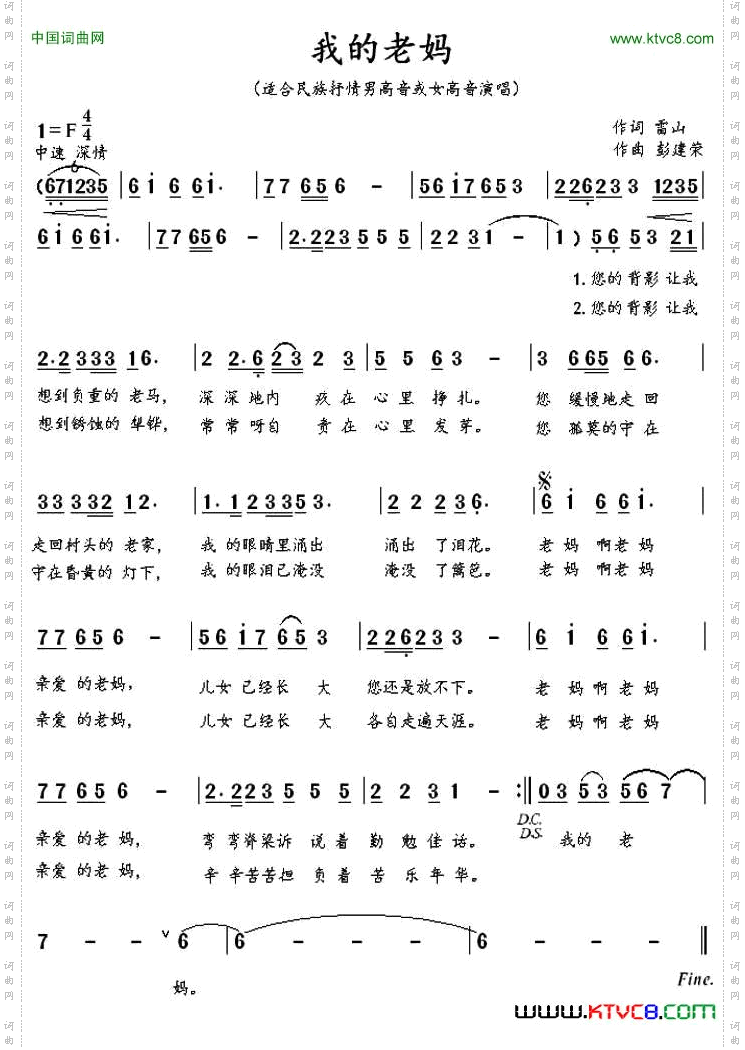 中国词曲网
我的老妈
www.ktvc8.com
（适合民族抒情男高音或女高音演唱）
1=F 4/4
作词 雷山
中速 深情
作曲 彭建荣
6
(671235 | 6 i 6 6i. | 7 7 6 5 6 - | 5 6 i 7 6 5 3 | 2 2 6 2 3 3 1235 |
6 i 6 6 i. | 7 7 6 5 6 6 - | 2. 2 2 3 5 5 5 | 2 2 3 1 - | 1 ) 5 6 5 3 2 1 |
1. 您的 背影 让我
2. 您的 背影 让我
2. 2 3 3 3 1 6. | 2 2. 6 2 3 2 3 | 5 5 6 3 - | 3 6 6 5 6 6. |
想到负重的 老马， 深 深 地内 疚 在 心 里 挣 扎。 您 缓慢地走 回
想到锈蚀的 犁铧， 常 常 呀自 责 在 心 里 发 芽。 您 那莫的守 在
3 3 3 3 3 2 1 2. | 1. 1 2 3 3 5 3. | 2 2 2 3 6. | 6 i 6 6 i. |
走回村头的 老家， 我 的眼睛里涌出 涌出 了泪花。 老 妈 啊老妈
守在昏黄的 灯下， 我 的眼泪已淹没 淹没 了篱笆。 老 妈 啊老妈
7 7 6 5 6 - | 5 6 i 7 6 5 3 | 2 2 6 2 3 - | 6 i 6 6 i. |
亲爱 的老妈， 儿女 已经长 大 您还是放不下。 老 妈啊老妈
亲爱 的老妈， 儿女 已经长 大 各自走遍天涯。 老 妈啊老妈
7 7 6 5 6 - | 2. 2 2 3 5 5 5 | 2 2 3 1 - :‖ 0 3 5 3 5 6 7 |
D.C.
D.S.
亲爱 的老 妈， 弯 弯脊梁诉 说 着 勤 勉 佳 话。 我的 老
亲爱 的老 妈， 辛 辛苦苦担 负 着 苦 乐 年 华。
7 - - - ∨ 6 | 6 - - - | 6 - - - ‖
妈。
Fine.
www.KTVC8.com
词曲网